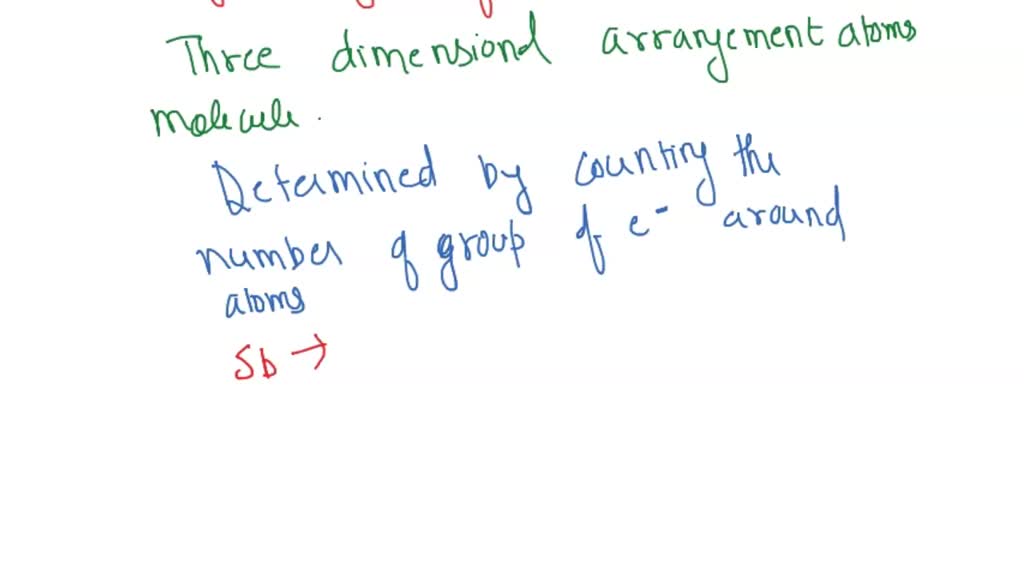 Three dimensional arrangement atoms
molecule.
Determined by counting the
number of group of e⁻ around
atoms
Sb →